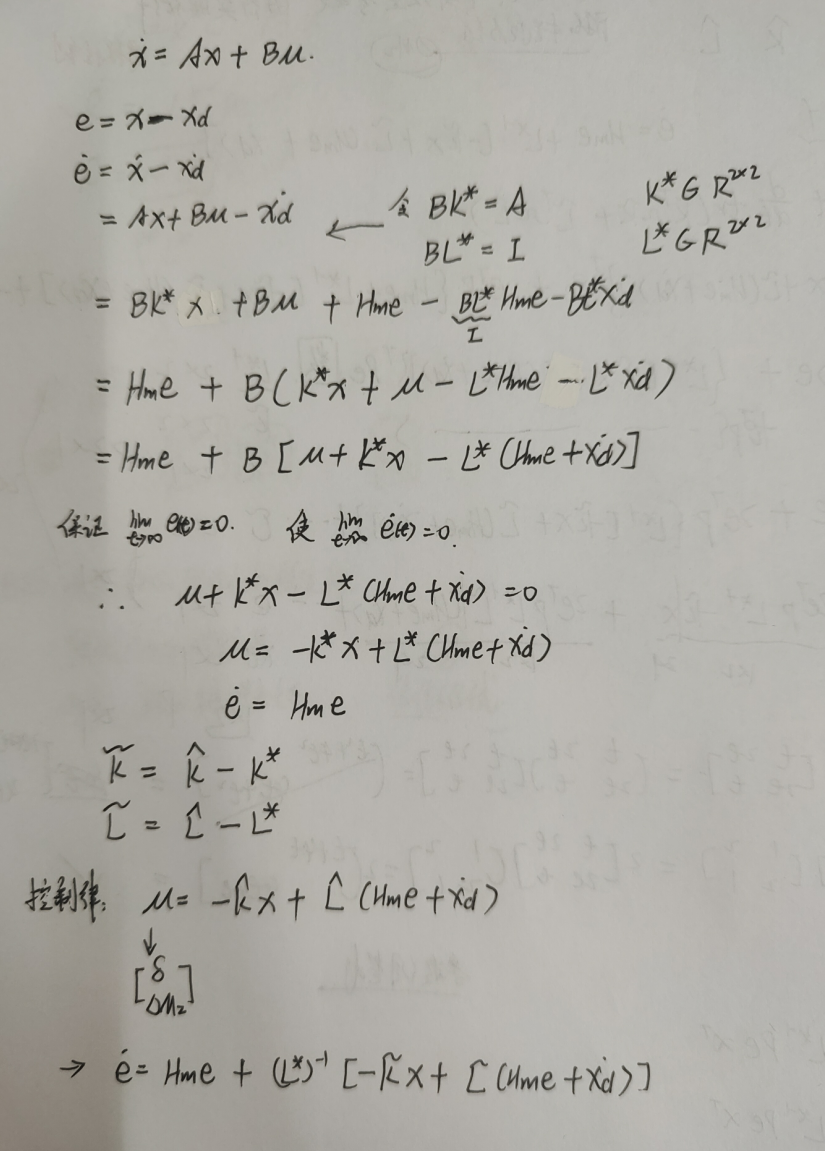 ẋ = Ax + Bu.
e = x - xd
ė = ẋ - ẋd
= Ax + Bu - ẋd ← 令 BK* = A K* ∈ R²ˣ²
BL* = I L* ∈ R²ˣ²
= BK*x + Bu + Hme - BL*Hme - BL*ẋd
I
= Hme + B(K*x + u - L*Hme - L*ẋd)
= Hme + B[u + K*x - L*(Hme + ẋd)]
保证 lim t→∞ e(t) = 0. 使 lim t→∞ ė(t) = 0.
∴ u + K*x - L*(Hme + ẋd) = 0
u = -K*x + L*(Hme + ẋd)
ė = Hme
K̃ = K̂ - K*
L̃ = L̂ - L*
控制律: u = -K̂x + L̂(Hme + ẋd)
↓
[δ
ΔMz]
→ ė = Hme + (L*)⁻¹[-K̃x + L̃(Hme + ẋd)]